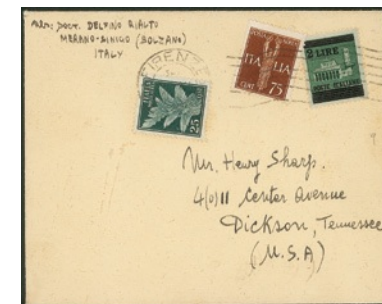 DOCT. DELFINO RIALTO
MERANO-SINIGO (BOLZANO)
ITALY
FIRENZE
ITALIA
CENT 75
2 LIRE
25
Mr. Henry Sharp.
4(0)11 Center Avenue
Dickson, Tennessee
(U.S.A)